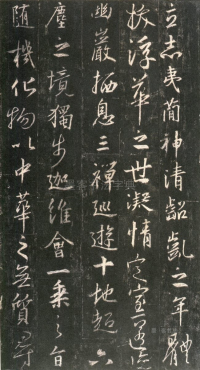 立志夷簡神清齠齔之年體
拔浮華之世凝情定室匿迹
幽巖栖息三禪巡遊十地超六
塵之境獨步迦維會一乘之旨
隨機化物以中華之無質尋